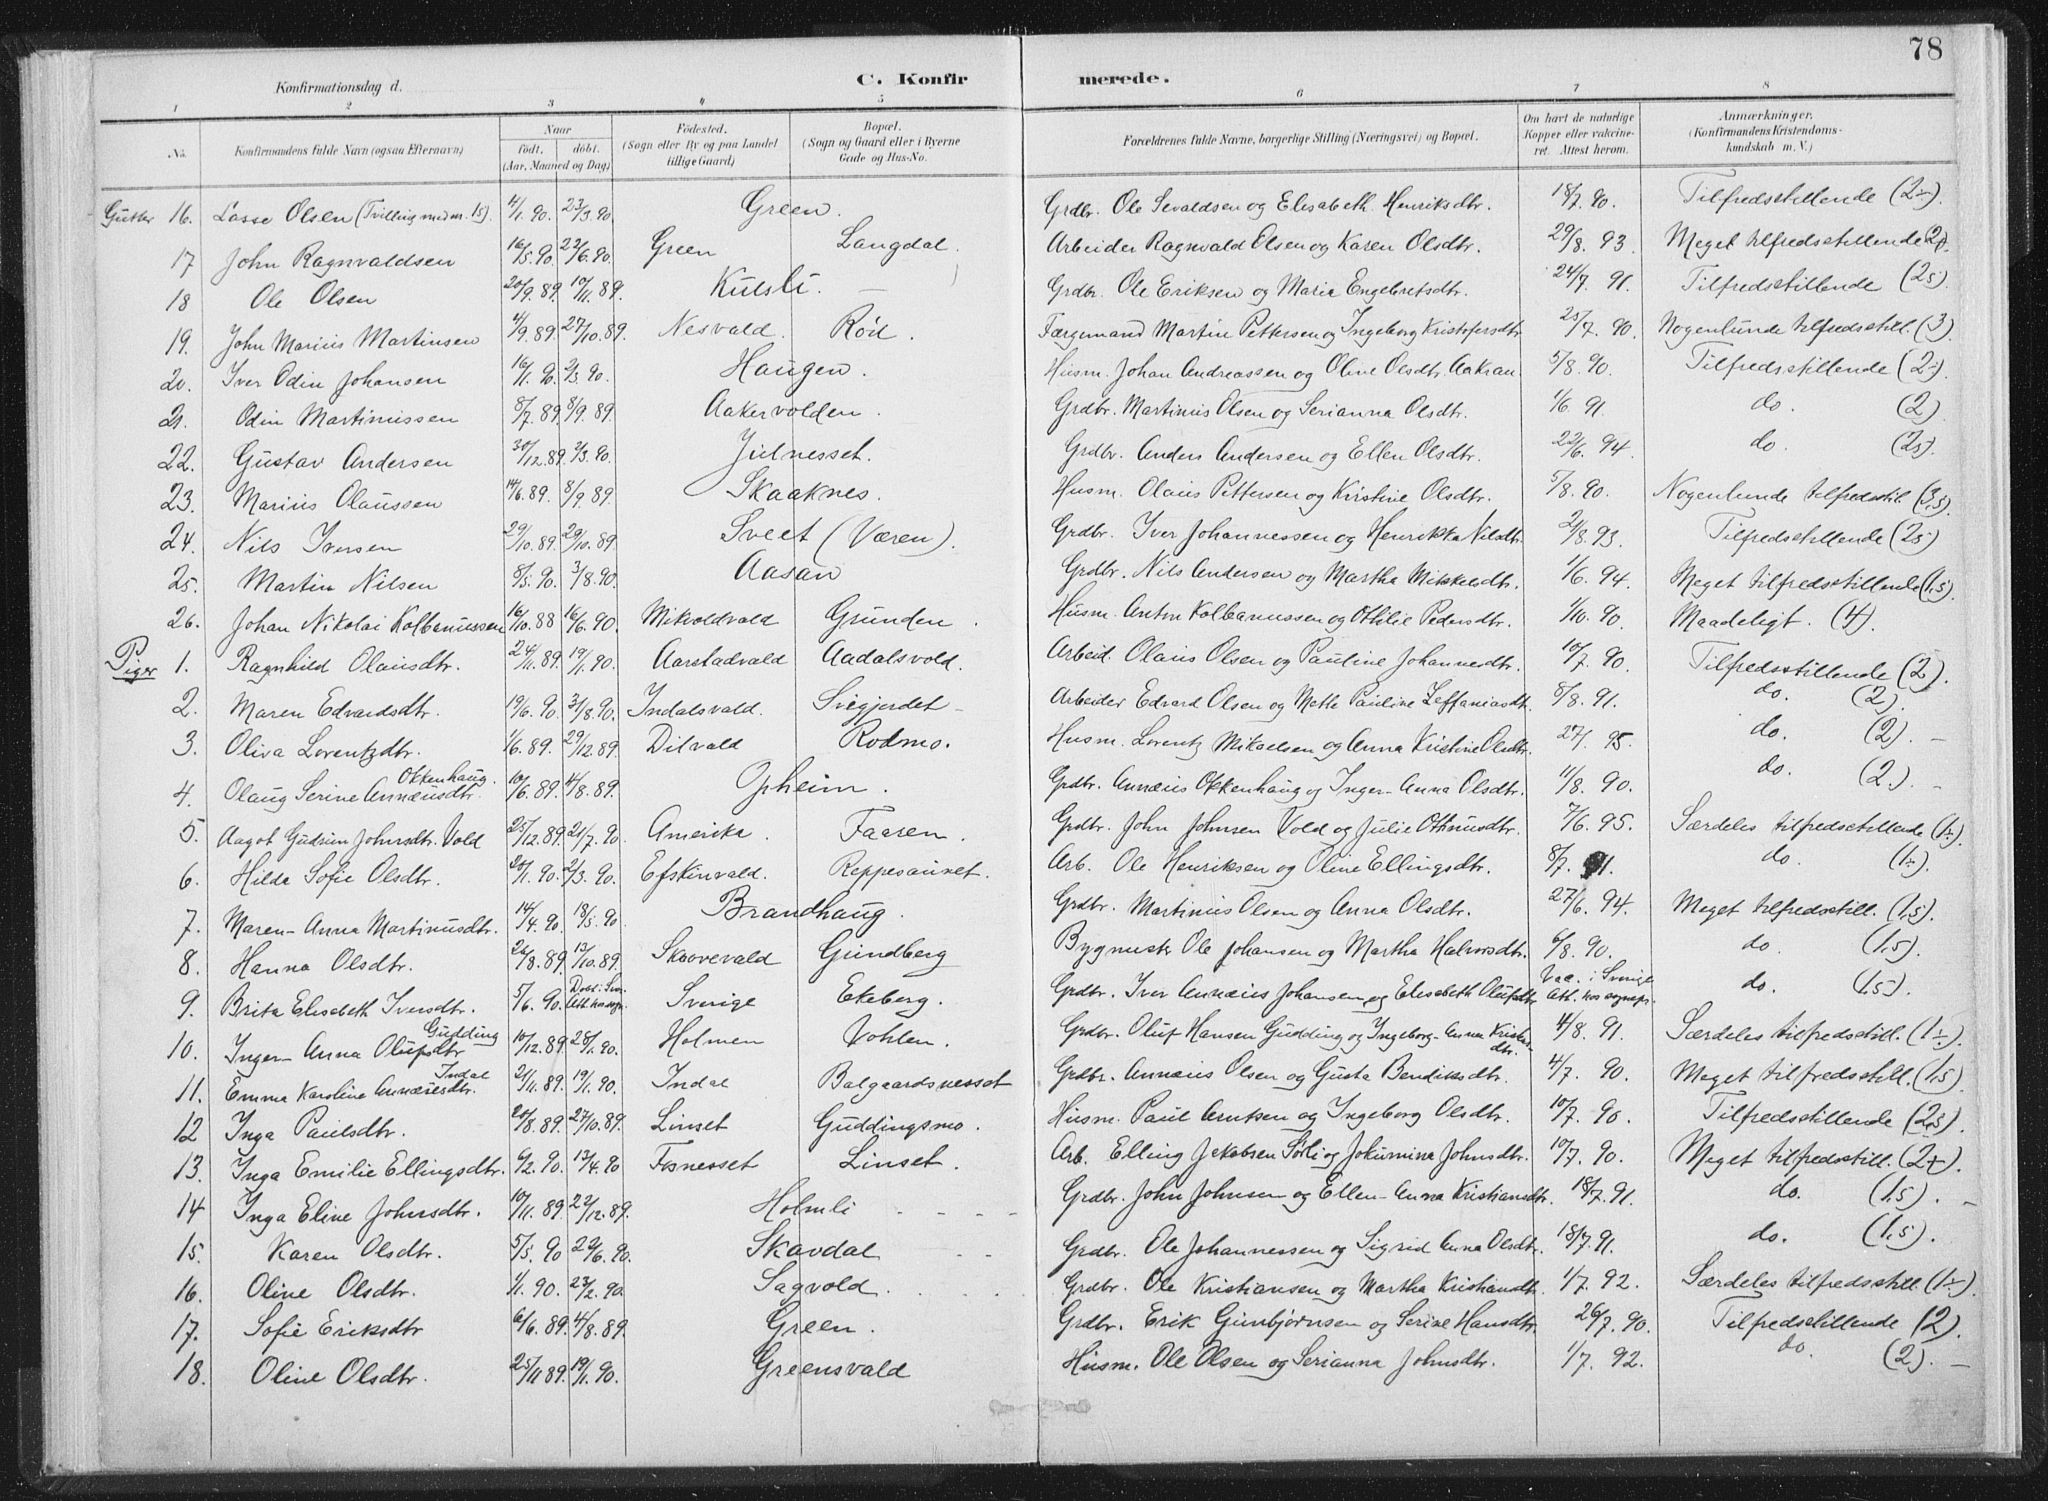 78
Konfirmationsdag d. C. Konfirmerede.
1 2 3 4 5 6 7 8
No. Konfirmandens fulde Navn (ogsaa Efternavn) Naar født. døbt. (Aar, Maaned og Dag) Fødested. (Sogn eller By og paa Landet tillige Gaard) Bopæl. (Sogn og Gaard eller i Byerne Gade og Hus-No. Forældrenes fulde Navne, borgerlige Stilling (Næringsvei) og Bopæl. Om havt de naturlige Kopper eller vakcineret. Attest herom. Anmærkninger. (Konfirmandens Kristendomskundskab m. V.)
Gutter 16. Lasse Olsen (Tvilling med nr. 15). 4/1. 90. 23/3. 90. Green. Grdbr. Ole Sevaldsen og Elisabeth Henriksdtr. 18/7. 90. Tilfredsstillende (2÷).
17 John Ragnvaldsen 16/5. 90. 22/6. 90. Green Langdal. Arbeider Ragnvald Olsen og Karen Olsdtr. 29/8. 93. Meget tilfredsstillende
18 Ole Olsen 20/9. 89. 10/11. 89. Kulsli. Grdbr. Ole Eriksen og Maria Engebretsdtr. 24/7. 91. Tilfredsstillende (2,5).
19. John Marius Martinsen 4/9. 89. 27/10. 89. Nesvald. Rød. Færgemand Martin Pettersen og Ingeborg Kristofersdtr. 25/7. 90. Nogenlunde tilfredsstill. (3)
20. Iver Odin Johansen 16/1. 90. 2/3. 90. Haugen. Husm. Johan Andreassen og Oline Olsdtr. Aakran. 5/8. 90. Tilfredsstillende (2÷)
21. Odin Martinussen 8/7. 89. 8/9. 89. Aakervolden. Grdbr. Martinus Olsen og Serianna Olsdtr. 1/6. 91. do. (2)
22. Gustav Andersen 30/12. 89. 2/3. 90. Julnesset. Grdbr. Anders Andersen og Ellen Olsdtr. 22/6. 94. do (2,5).
23. Marius Olaussen 14/6. 89. 8/9. 89. Skaaknes. Husm. Olaus Pettersen og Kristine Olsdtr. 5/8. 90. Nogenlunde tilfredsstil. (3,5).
24. Nils Iversen 29/10. 89. 29/10. 89. Sveet (Væren). Grdbr. Iver Johannessen og Henrikka Nilsdtr. 2/8. 93. Tilfredsstillende (2,5)
25. Martin Nilsen 8/5. 90. 3/8. 90. Aasan Grdbr. Nils Andersen og Martha Mikkelsdtr. 1/6. 94. Meget tilfredsstillende (1,5).
26. Johan Nikolai Kolbanussen 16/10. 88 16/6. 90. Mikvoldvald Grunden. Husm. Anton Kolbanussen og Othilie Pedersdtr. 1/10. 90. Maadeligt. (4).
Piger 1. Ragnhild Olausdtr. 24/11. 89. 19/1. 90. Aarstadvald Aadalsvold. Arbeid. Olaus Olsen og Pauline Johannesdtr. 10/7. 90. Tilfredsstillende (2).
2. Maren Edvardsdtr. 19/6. 90. 31/8. 90. Indalsvald. Svegjerdet Arbeider Edvard Olsen og Mette Pauline Zeffaniasdtr. 8/8. 91. do. (2).
3. Oliva Lorentzdtr. 1/6. 89. 29/12. 89. Dilvald Rodmo. Husm. Lorentz Mikaelsen og Anna Kristine Olsdtr. 27/1. 95. do. (2).
4. Olaug Serine Annæusdtr. Okkenhaug. 10/6. 89. 4/8. 89. Opheim. Grdbr. Annæus Okkenhaug og Inger-Anna Olsdtr. 11/8. 90. do. (2.).
5. Aagot Gudrun Johnsdtr. Vold 25/12. 89. 21/7. 90. Amerika. Faaren. Grdbr. John Johnsen Vold og Julie Othnusdtr. 7/6. 95. Særdeles tilfredsstillende (1÷).
6. Hilda Sofie Olsdtr. 20/1. 90. 2/3. 90. Efskinvald. Reppesaunet. Arb. Ole Henriksen og Oline Ellingsdtr. 8/7. 91. do. (1÷).
7. Maren-Anna Martinusdtr. 14/4. 90. 18/5. 90. Brandhaug. Grdbr. Martinus Olsen og Anna Olsdtr. 27/6. 94. Meget tilfredsstill. (1,5).
8. Hanna Olsdtr. 26/8. 89. 13/10. 89. Skaarevald Gundberg Bygmester Ole Johansen og Martha Halvorsdtr. 6/8. 90. do (1,5).
9. Brita Elisabeth Iversdtr. 5/6. 90. Døbt i Sve. Att. hos sogepr. Sverige Ekeberg. Grdbr. Iver Annæus Johansen og Elisabeth Olufsdtr. Vac. i Sverige Att. hos sognepr. do. (1,5).
10. Inger-Anna Olufsdtr Gudding 10/12. 89. 26/1. 90. Holmen Vohlen. Grdbr. Oluf Hansen Gudding og Ingeborg-Anna Kristensdtr. 4/8. 91. Særdeles tilfredsstill. (1÷).
11. Emma Karoline Annæusdtr. Indal 21/11. 89. 19/1. 90. Indal Balgaardsnesset Grdbr. Annæus Olsen og Gusta Bendiksdtr. 4/7. 90. Meget tilfredsstill. (1,5)
12 Inga Paulsdtr. 20/8. 89. 27/10. 89. Linset Guddingsmo. Husm. Paul Arntsen og Ingeborg Olsdtr. 10/7. 90. Tilfredsstillende (2,5)
13. Inga Emilie Ellingsdtr. 6/2. 90. 13/4. 90 Fosnesset Linset. Arb. Elling Jakobsen Sørli og Jokumina Johnsdtr. 10/7. 90. Meget tilfredsstill. (2+).
14 Inga Eline Johnsdtr. 10/11. 89. 22/12. 89. Holmli Grdbr. John Johnsen og Ellen-Anna Kristiansdtr. 18/7. 91. do. (1,5).
15. Karen Olsdtr. 5/5. 90 22/6. 90. Skavdal Grdbr. Ole Johannessen og Sigrid Anna Olsdtr. 18/7. 91. do. (1,5).
16. Oline Olsdtr. 1/1. 90. 23/2. 90. Sagvold. Grdbr. Ole Kristiansen og Martha Kristiansdtr. 1/7. 92. Særdeles tilfredsstill. (1÷).
17. Sofie Eriksdtr 6/6. 89. 4/8. 89. Green. Grdbr. Erik Gunbjørnsen og Serine Hansdtr. 26/7. 90. Tilfredsstillende (2).
18. Oline Olsdtr. 25/11 89. 19/1. 90. Greensvald Husm. Ole Olsen og Serianna Johnsdtr. 1/7. 92. do. (2).